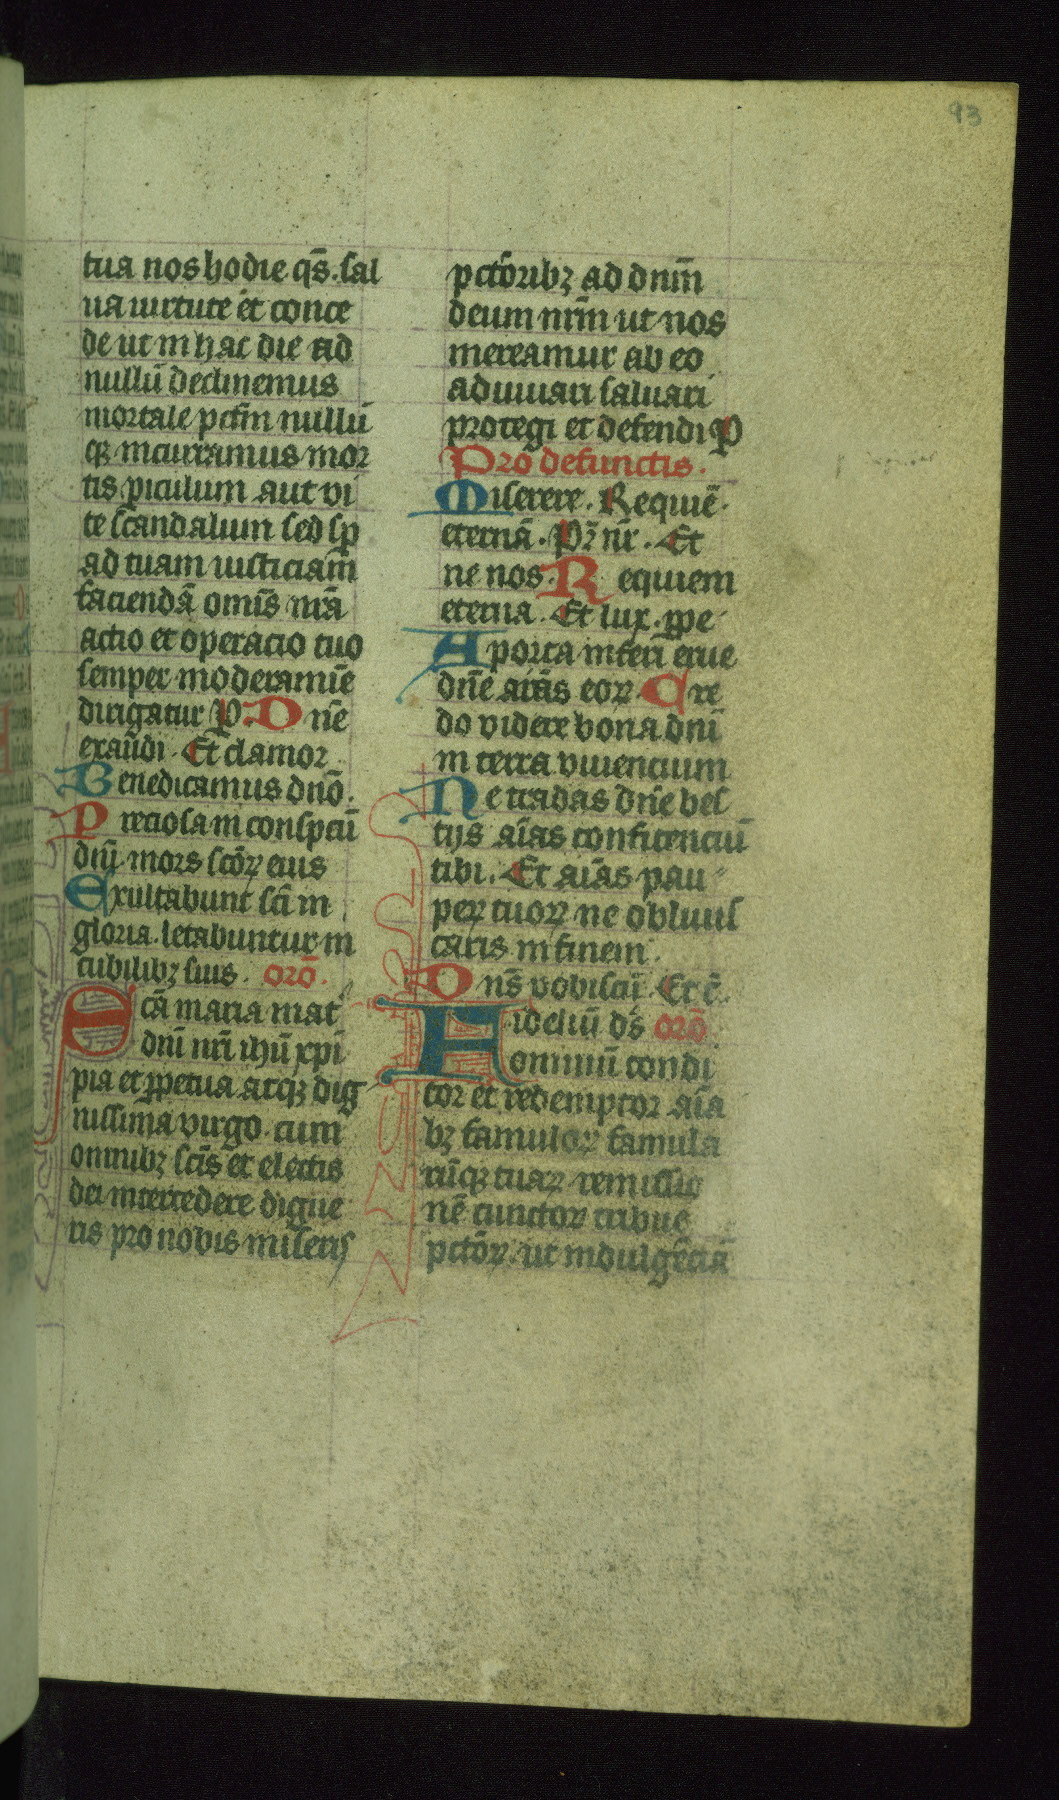 93
tua nos hodie qs̄. sal
ua uirtute et conce
de ut in hac die ad
nullū declinemus
mortale pctm̄ nullū
qꝫ incurramus mor
tis piculum aut vi
te scandalum sed sꝑ
ad tuam iusticiam
faciendā omīs nrā
actio et operacio tuo
semper moderamīe
dirigatur P. Dn̄e
exaūdi. Et clamor
Benedicamus dnō.
Preciosa in conspcū
dnī. mors sctōꝝ eius
Exultabunt scī in
gloria. letabuntur in
cubilibꝫ suis. orō.
Scā maria mat̄
dnī nrī ihū xpi
pia et ꝑpetua atqꝫ dig
nissima virgo. cum
omnibꝫ scīs et electis
dei intercedere digne
tis pro nobis miseris
pctōribꝫ ad dnm̄
deum nrm̄ ut nos
mereamur ab eo
adiuuari saluari
protegi et defendi P
Pro defunctis.
Miserere. Requiē
eternā. Pr̄ nr̄. Et
ne nos. Requiem
eterna. Et lux. ꝑpe
A porta inferi erue
dn̄e aīas eoꝝ. Cre
do videre bona dnī
in terra viuencium
Ne tradas dn̄e bes
tijs aīas confitenciū
tibi. Et aīas pau
peꝝ tuoꝝ ne obliuis
caris in finem.
Dns̄ vobiscū. Et c̄.
Fideliū ds̄ orō
omniū condi
tor et redemptor aīa
bꝫ famuloꝝ famula
rūqꝫ tuaꝝ remissio
nē cunctoꝝ tribue
pctōꝝ. ut indulgēciā